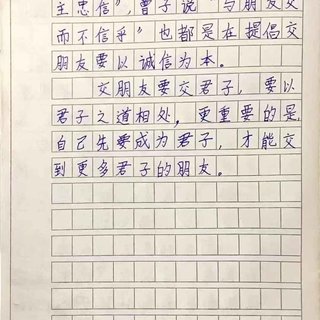 主忠信”，曾子说“与朋友交
而不信乎”也都是在提倡交
朋友要以诚信为本。
交朋友要交君子，要以
君子之道相处，更重要的是，
自己先要成为君子，才能交
到更多君子的朋友。